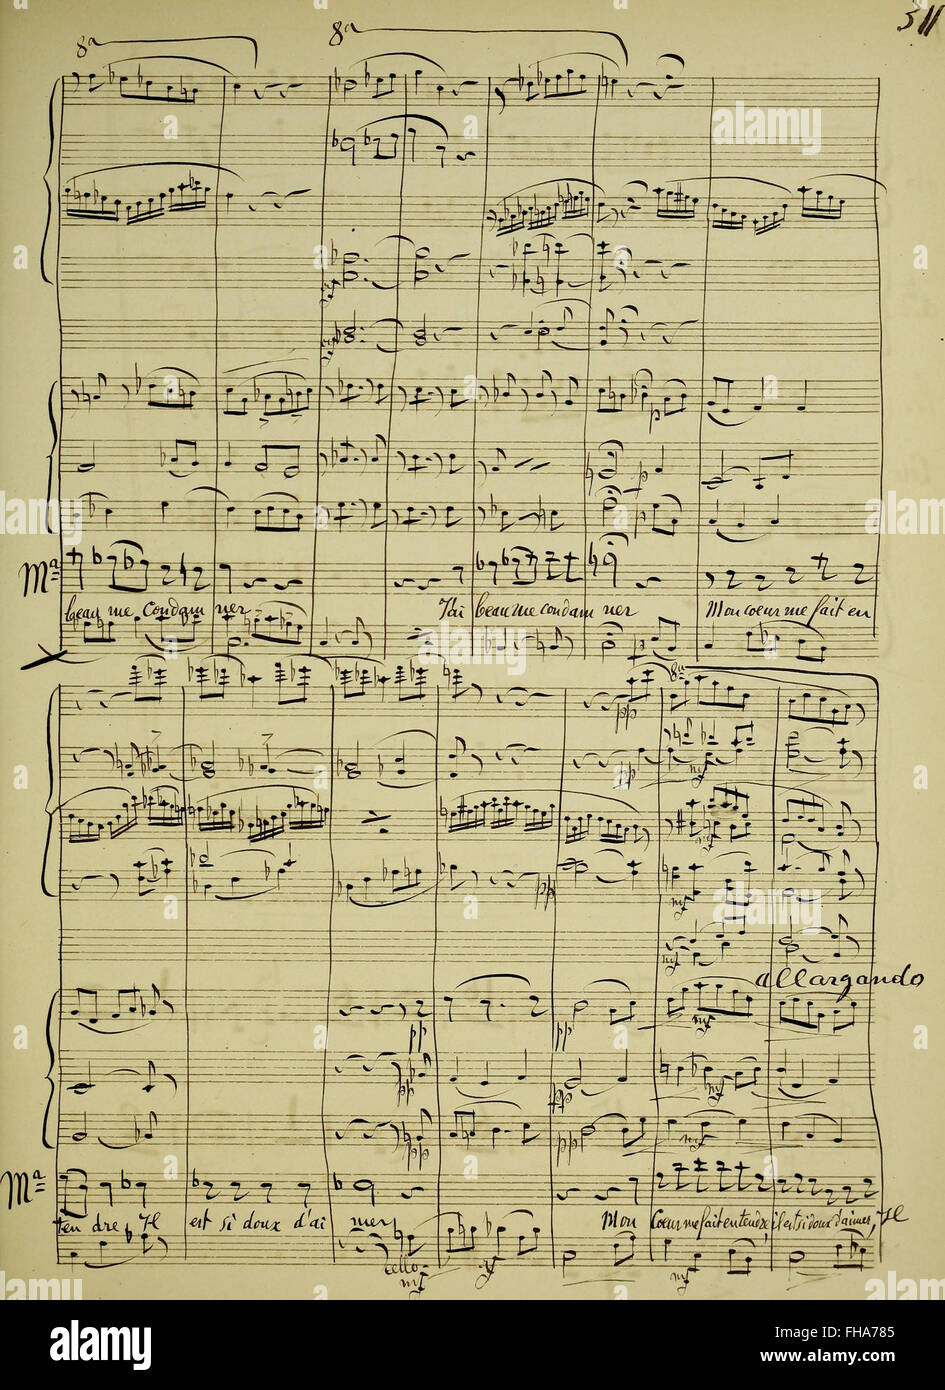 311
8a
8a
Ma
beau me condam ner J'ai beau me condam ner Mon coeur me fait en
8a
pp
pp
mf
mf
pp
mf
mf
allargando
pp
pp
mf
pp
pp
mf
pp
mf
Ma
ten dre, Il est si doux d'ai mer Mon Coeur me fait entendre, il est si doux d'aimer, Il
cello
mf
mf
alamy
Image ID: FHA785
www.alamy.com